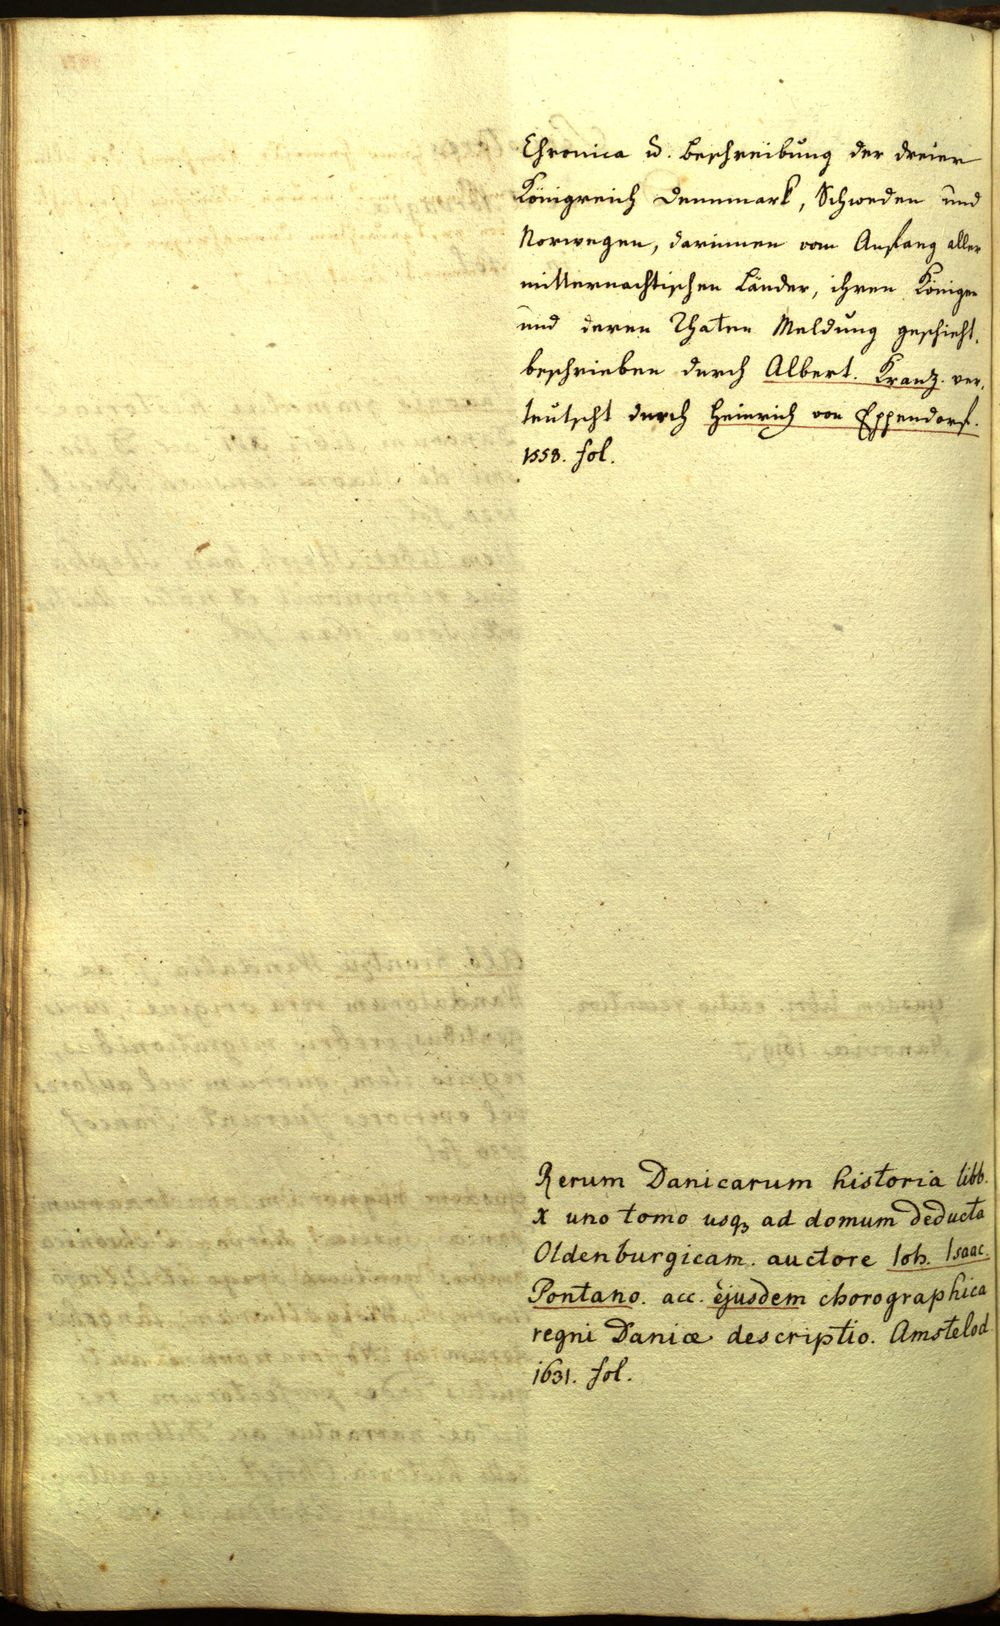 Chronica u. Beschreibung der dreier
Königreich Dennmark, Schweden und
Norwegen, darinnen vom Anfang aller
mitternachtischen Länder, ihren Königen
und deren Thaten Meldung geschieht.
beschrieben durch Albert. Kranz. ver,
teutscht durch Heinrich von Eppendorf.
1558. fol.
Rerum Danicarum historia libb.
X uno tomo usq3 ad domum deducta
Oldenburgicam. auctore Ioh. Isaac.
Pontano. acc. ejusdem chorographica
regni Daniæ descriptio. Amstelod
1631. fol.